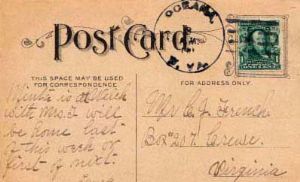 Post Card
OCEANA,
VA.
THIS SPACE MAY BE USED
FOR CORRESPONDENCE
FOR ADDRESS ONLY.
with Mrs. I will
be home last
of this week or
first of next.
Mr C. J. French
Box 207. Crewe.
Virginia